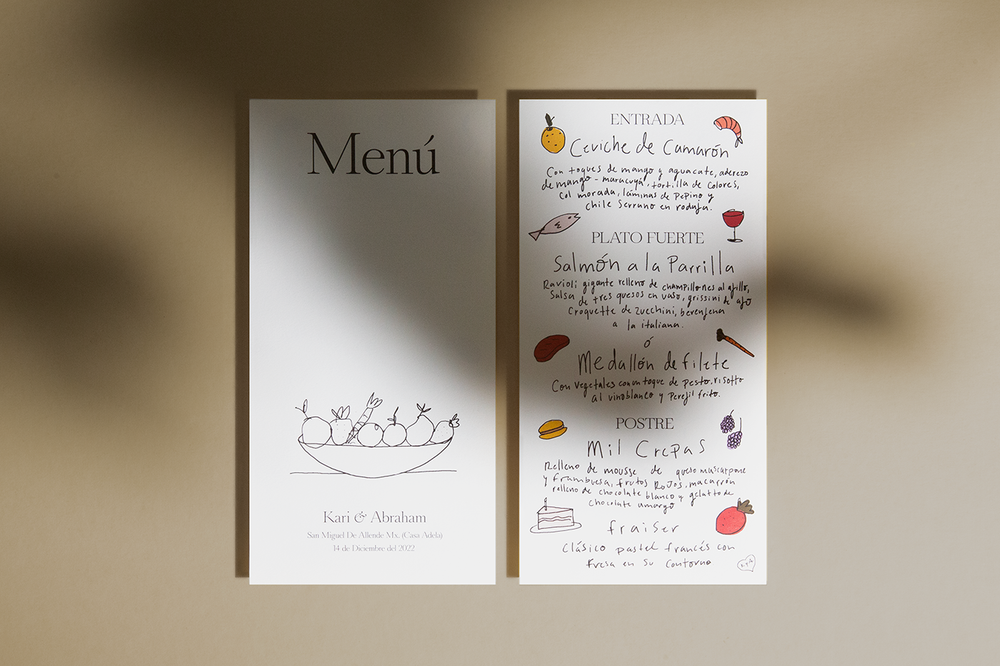 Menú
Kari & Abraham
San Miguel De Allende Mx. (Casa Adela)
14 de Diciembre del 2022
ENTRADA
Ceviche de Camarón
Con toques de mango y aguacate, aderezo
de mango-maracuyá, tortilla de colores,
col morada, láminas de pepino y
chile serrano en rodaja.
PLATO FUERTE
Salmón a la Parrilla
Ravioli gigante relleno de champiñones al ajillo,
Salsa de tres quesos en vaso, grissini de ajo
Croquette de zucchini, berenjena
a la italiana.
ó
Medallón de filete
Con vegetales con un toque de pesto, risotto
al vino blanco y perejil frito.
POSTRE
Mil Crepas
Relleno de mousse de queso mascarpone
y frambuesa, frutos rojos, macarrón
relleno de chocolate blanco y gelatto de
chocolate amargo
fraiser
Clásico pastel francés con
fresa en su contorno